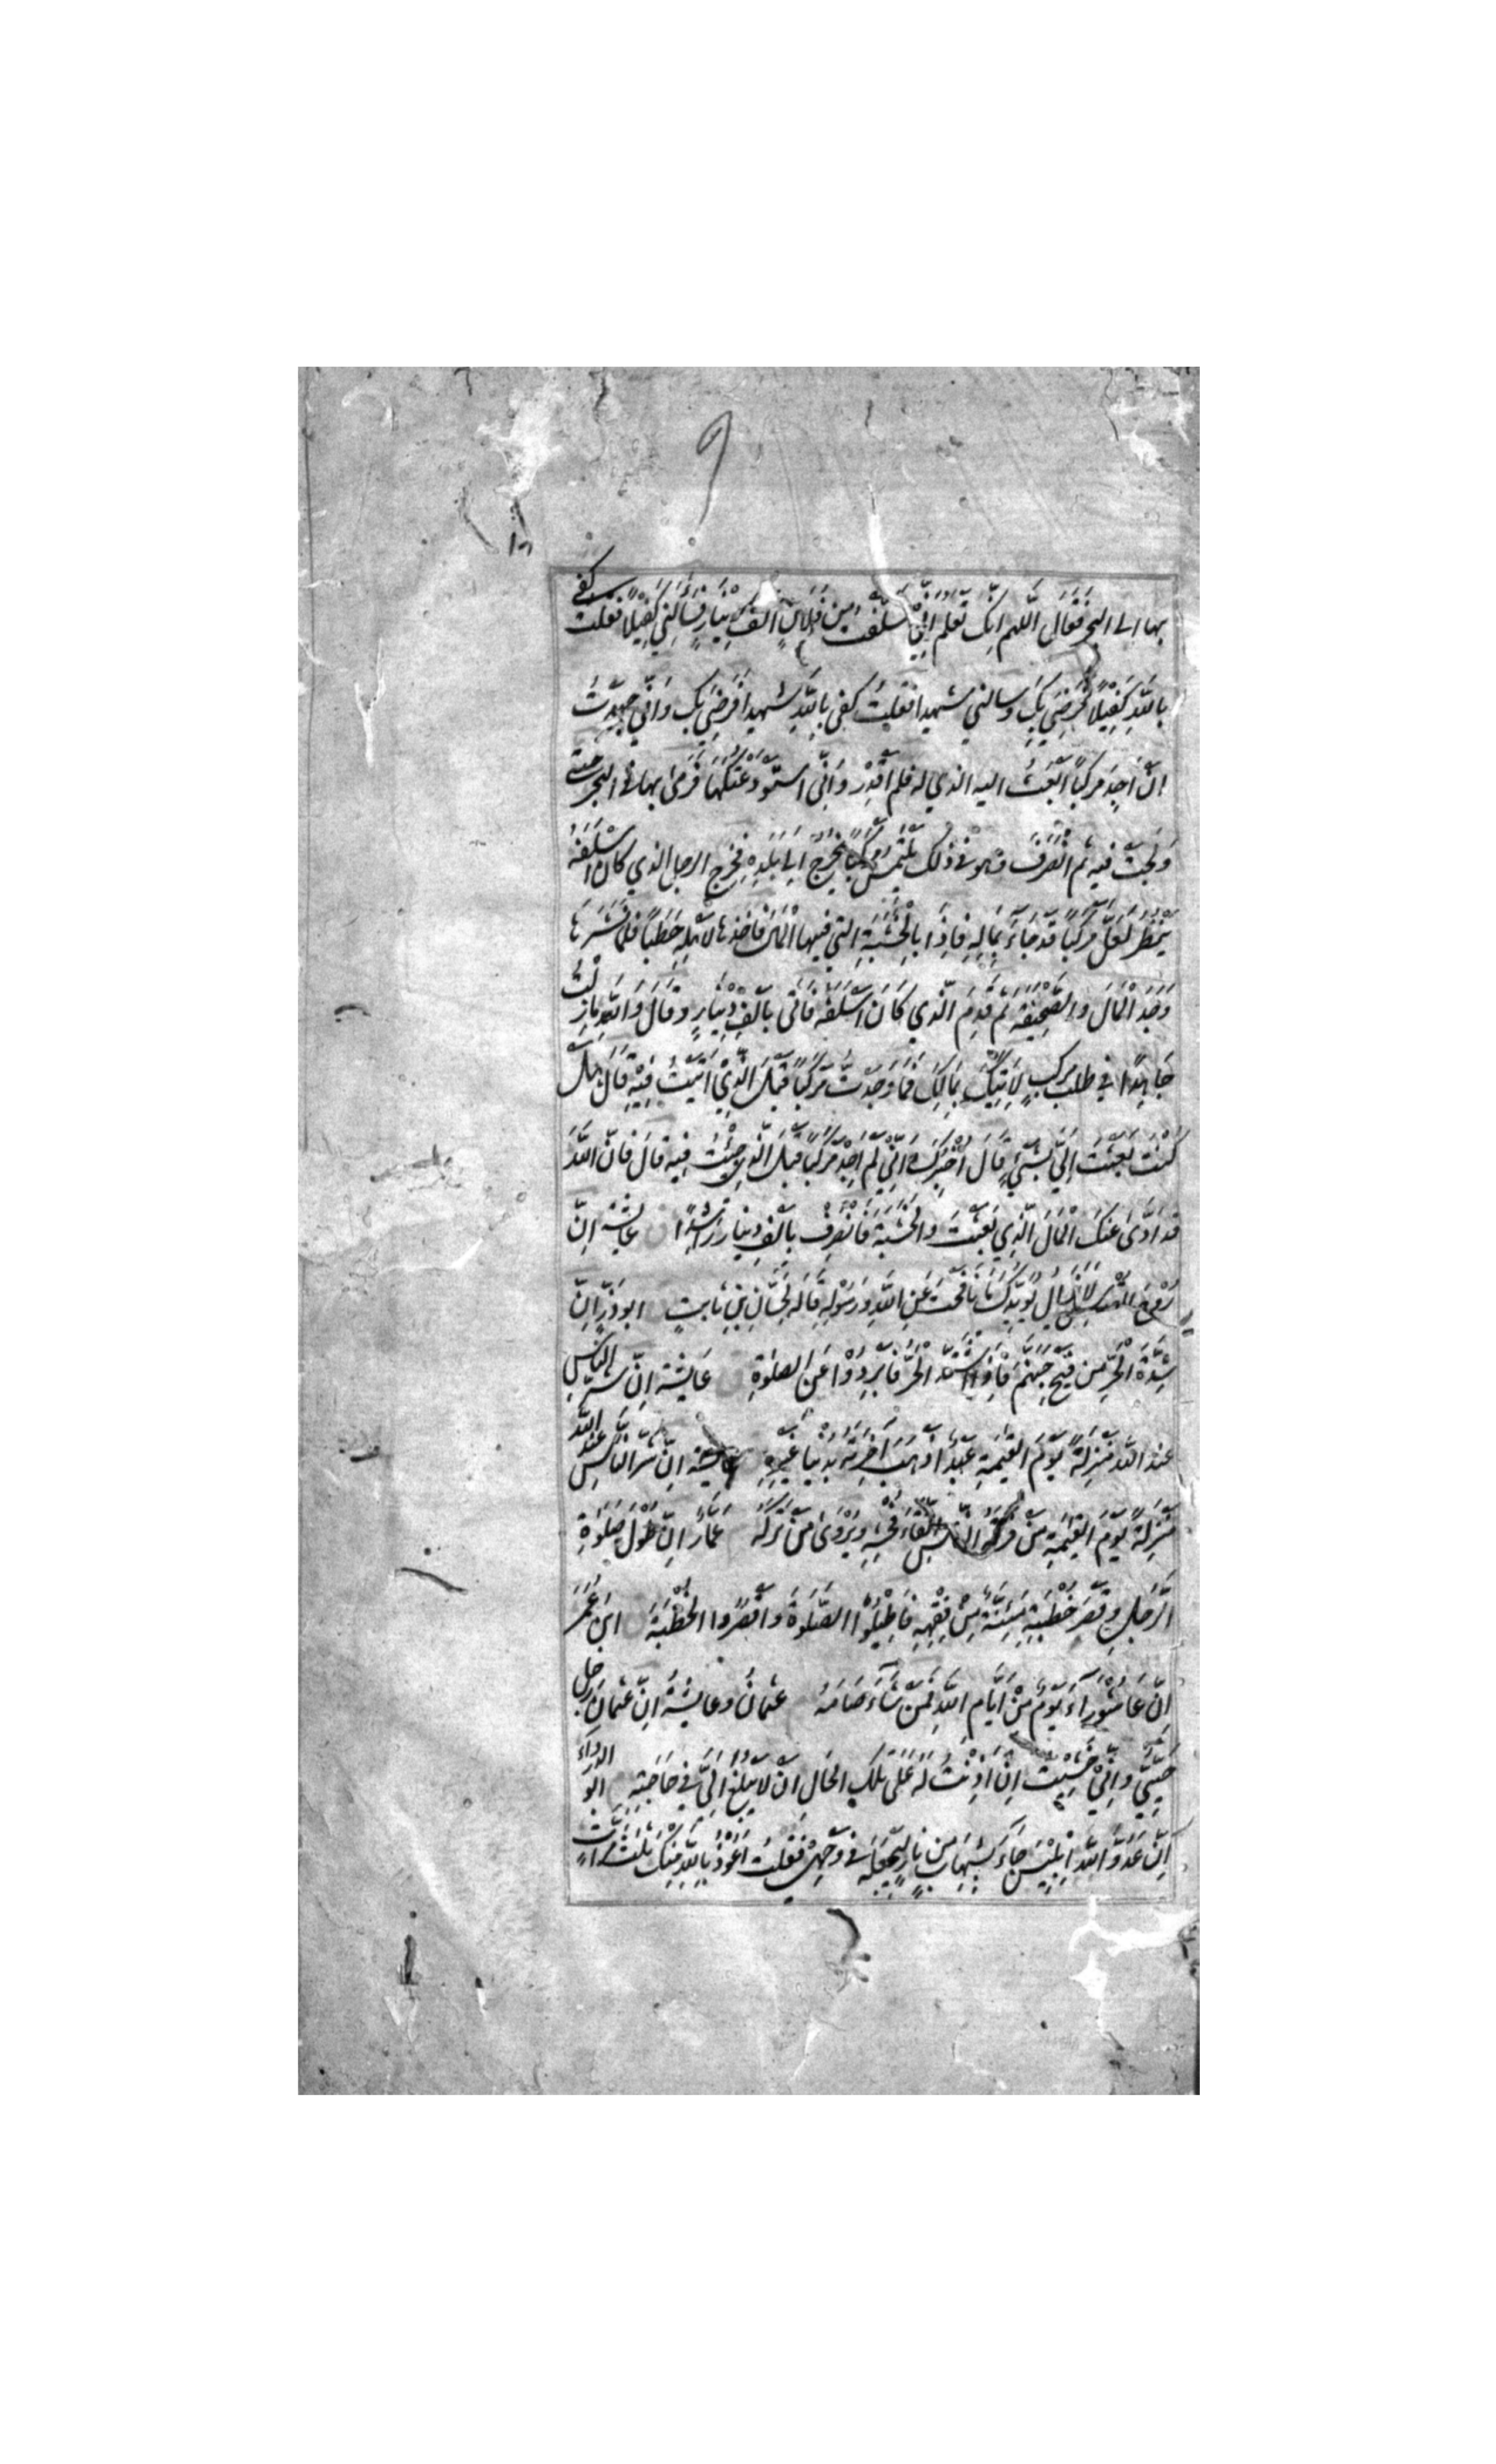 ١٦
بها الى البحر فَقَالَ اللّهم اِنّك تَعْلَم اَنِّي تَسَلَّفْتُ مِن فُلَانٍ اَلْفَ دِيْنَارٍ فَسَأَلَنِي كَفِيْلًا فقلت كفى
بِاللّهِ كَفِيْلًا فَرَضِيَ بِكَ وسالني شهيدا فقلتُ كفى بِاللّهِ شهيدا فَرَضِيَ بِكَ وَاَنِّي جَهِدْتُ
اَنْ اَجِدَ مَرْكَبًا اَبْعَثُ اليه الذي له فلم اَقْدِرْ وَاِنِّي اسْتَوْدَعْتُكَهَا فَرَمى بها في البحر حتى
وَلَجَتْ فيه ثم انْصَرَفَ وهو في ذلك يَلْتَمِسُ مَرْكَبًا يَخْرُجُ اِلَى بَلَدِهِ فخرج الرجل الذي كان اَسْلَفَهُ
يَنْظُرُ لَعَلَّ مَرْكَبًا قَدْ جَاءَ بِمَالِهِ فَاِذَا بِالْخَشَبَةِ التي فيها الْمَالُ فَاَخَذَها لِاَهْلِهِ حَطَبًا فلمّا نَشَرَهَا
وَجَدَ الْمَالَ والصَّحِيْفَةَ ثُمَّ قَدِمَ الَّذِي كَانَ اَسْلَفَهُ فَاَتَى بِاَلْفِ دِيْنَارٍ وَقَالَ وَاللّهِ مَا زِلْتُ
جَاهِدًا في طلب مركبٍ لِاٰتِيَكَ بِمَالِكَ فَمَا وَجَدْتُ مَرْكَبًا قَبْلَ الَّذِيْ اَتَيْتُ فِيْهِ قَالَ هَلْ
كُنْتَ بَعَثْتَ اِلَيَّ بِشَيْءٍ قَالَ اُخْبِرُكَ اَنِّيْ لَمْ اَجِدْ مَرْكَبًا قَبْلَ الَّذِي جِئْتُ فِيْهِ قَالَ فَاِنَّ اللّهَ
قد اَدّٰى عَنْكَ الْمَالَ الَّذِي بَعَثْتَ والْخَشَبَةَ فَانْصَرِفْ بِالْفِ دِينَارٍ رَاشِدًا ق عَائِشَة اِنَّ
رُوْحَ القُدُسِ لَا يَزَالُ يُؤَيِّدُكَ مَا نَافَحْتَ عَنِ اللّهِ وَرَسُوْلِهِ قَالَهُ لِحَسَّانِ بْنِ ثَابِتٍ ابوذَرٍّ اِنَّ
شِدَّةَ الْحَرِّ مِن فَيْحِ جَهَنَّمَ فَاِذَا اشْتَدَّ الْحَرُّ فَاَبْرِدُوْا عَنِ الصلوٰةِ ق عَايِشَة اِنَّ شَرَّ النَّاسِ
عند اللّهِ مَنْزِلَةً يَوْمَ القِيٰمَةِ عَبْدٌ اَذْهَبَ اٰخِرَتَهُ بِدُنْيَا غَيْرِهِ عايشة اِنَّ شَرَّ النَّاسِ عِنْدَ اللّهِ
مَنْزِلَةً يَوْمَ القِيٰمَةِ مَنْ تَرَكَهُ النَّاسُ اتِّقَاءَ فُحْشِهِ وَيُرْوٰى مَنْ تَرَكَهُ عَمَّارٌ اِنَّ طُوْلَ صَلٰوةِ
الرَّجُلِ وَقِصَرَ خُطْبَتِهِ مَئِنَّةٌ مِنْ فِقْهِهِ فَاَطِيْلُوْا الصَّلٰوةَ وَاقْصُرُوا الْخُطْبَةَ ق ابن عُمَرَ
اِنَّ عَاشُوْرَاءَ يَوْمٌ مِنْ اَيَّامِ اللّهِ فَمَنْ شَاءَ صَامَهُ عثمانُ وعايشةُ اِنَّ عثمانَ رَجل
حَيِيٌّ وَاِنِّيْ خَشِيْتُ اِنْ اَذِنْتُ لَهُ عَلَى تِلْكَ الحَالِ اَنْ لَا يَبْلُغَ اِلَيَّ فِي حَاجَتِهِ ابُو الدرداءِ
اِنَّ عَدُوَّ اللّهِ اِبْلِيْسَ جَاءَ بِشِهَابٍ مِن نَارٍ لِيَجْعَلَهُ في وَجْهِيْ فَقُلتُ اَعُوْذُ بِاللّهِ مِنْكَ ثَلٰثَ مَرَّاتٍ